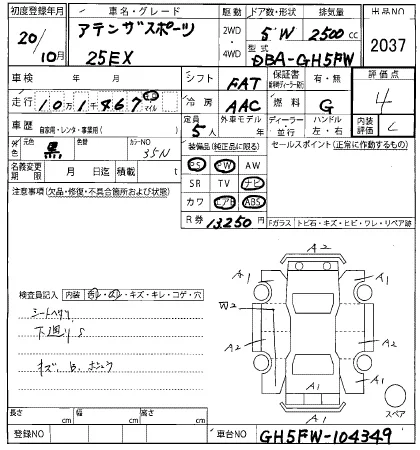 初度登録年月 車名・グレード 駆動 ドア数・形状 排気量 出品NO
20/10月 アテンザスポーツ 25EX 2WD・4WD 5 W 2500cc 2037
型式 DBA-GH5FW
車検 年 月 シフト FAT 保証書 有・無 評価点 4
走行 10万1千467 キロ マイル 冷房 AAC 燃料 G 内装評価 C
車歴 自家用・レンタ・事業用( ) 定員 5人 外車モデル 年 ディーラー・並行 ハンドル 左・右
外色 元色 黒 色替 カラーNO 35N 装備品(純正品に限る) セールスポイント(正常に作動するもの)
名義変更期限 月 日迄 積載 t PS PW AW
注意事項(欠品・修復・不具合箇所および状態) SR TV ナビ
カワ エアB ABS
R券 13250円 Fガラス トビ石・キズ・ヒビ・ワレ・リペア跡
A2
A1 A1
検査員記入 内装 キズ・キレ・コゲ・穴 W2
シートヘタリ
下廻りS A2 A2
キズ、B、
A1 A1 A1
A1 スペア
長さ cm 幅 cm 高さ cm
登録NO 車台NO GH5FW-104349